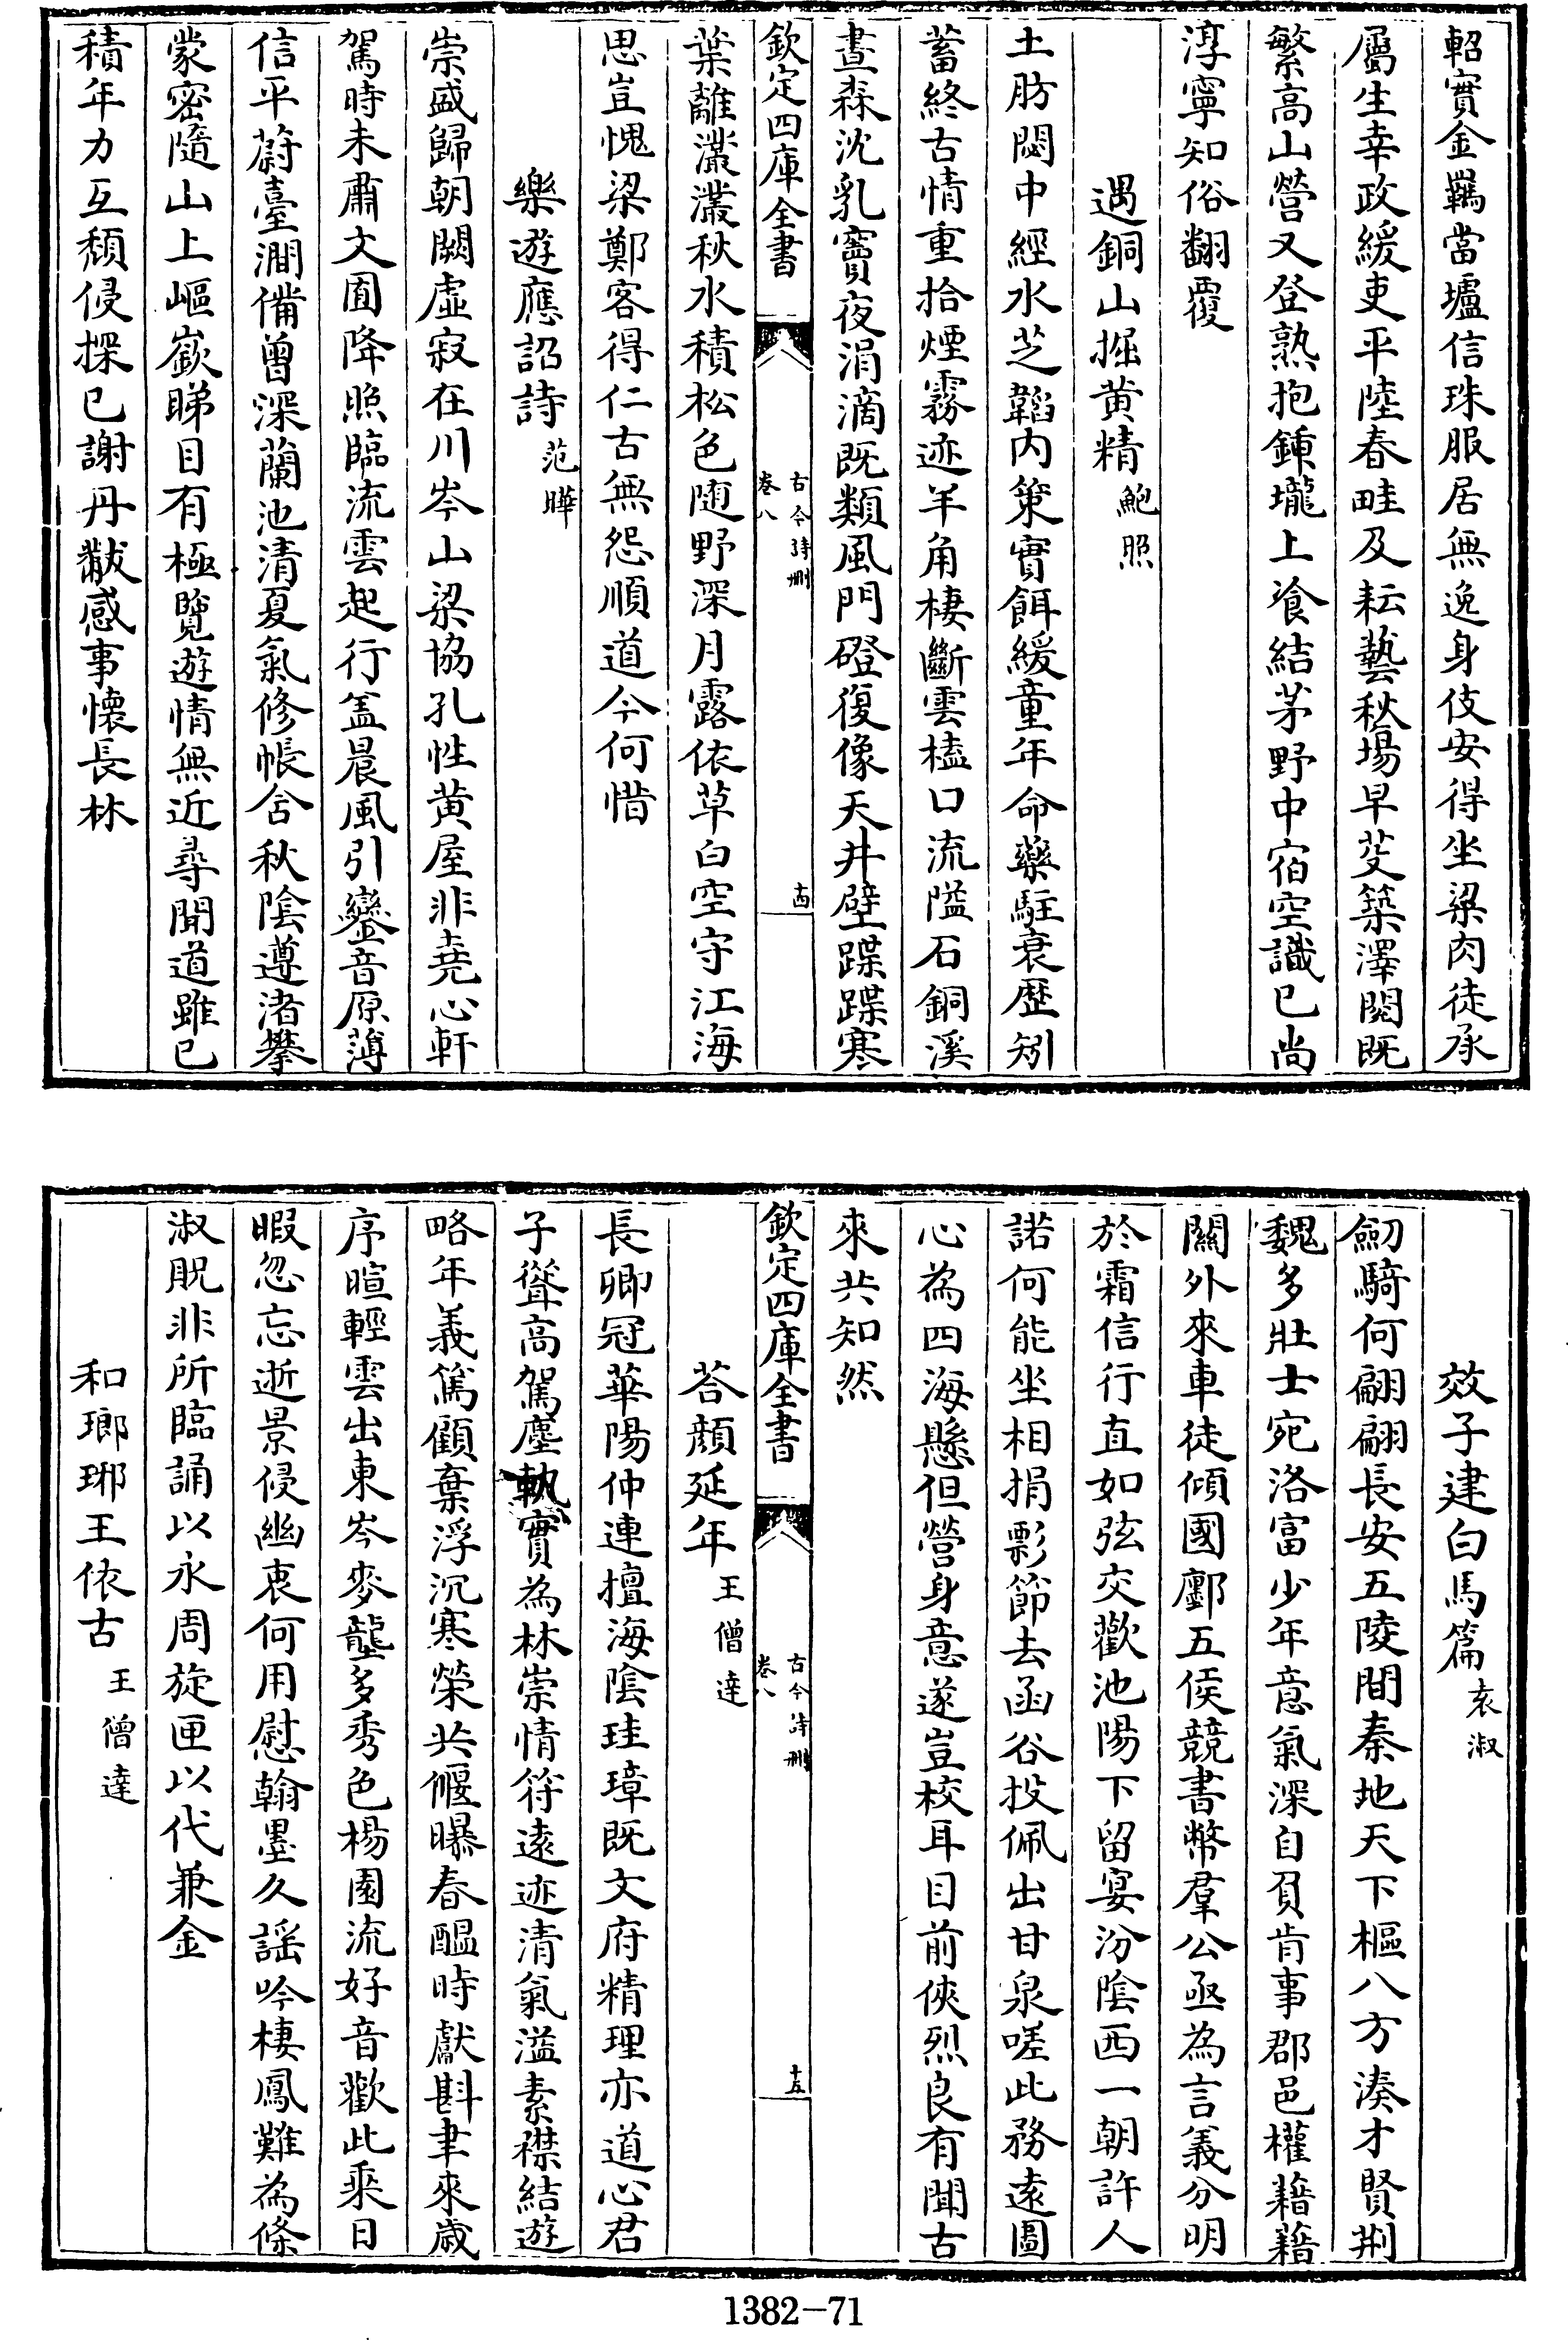 軺實金羈當壚信珠服居無逸身伎安得坐梁肉徒承
屬生幸政緩吏平陸春畦及耘藝秋場早芟築澤閱既
繁高山營又登熟抱鍤壠上飡結茅野中宿空識已尚
淳寧知俗翻覆
遇銅山掘黄精鮑照
土肪閟中經水芝韜内策寶餌緩童年命藥駐衰歴矧
蓄終古情重拾煙霧迹羊角棲斷雲榼口流隘石銅溪
晝森沈乳竇夜涓滴既類風門磴復像天井壁蹀蹀寒
欽定四庫全書
古今詩刪
卷八
十四
葉離灇灇秋水積松色随野深月露依草白空守江海
思豈愧梁鄭客得仁古無怨順道今何惜
樂遊應詔詩范曄
崇盛歸朝闕虛寂在川岑山梁協孔性黄屋非堯心軒
駕時未肅文囿降照臨流雲起行盖晨風引鑾音原薄
信平蔚臺澗備曾深蘭池清夏氣修帳含秋陰遵渚攀
蒙密隨山上嶇嶔睇目有極覽遊情無近尋聞道雖已
積年力互頽侵探已謝丹黻感事懷長林
效子建白馬篇袁淑
劒騎何翩翩長安五陵間秦地天下樞八方湊才賢荆
魏多壯士宛洛富少年意氣深自負肯事郡邑權藉藉
關外來車徒傾國鄽五侯競書幣羣公亟為言義分明
於霜信行直如弦交歡池陽下留宴汾陰西一朝許人
諾何能坐相捐彯節去函谷投佩出甘泉嗟此務遠圖
心為四海懸但營身意遂豈校耳目前俠烈良有聞古
來共知然
欽定四庫全書
古今詩刪
卷八
十五
荅顔延年王僧達
長卿冠華陽仲連擅海陰珪璋既文府精理亦道心君
子聳高駕塵軌實為林崇情符遠迹清氣溢素襟結遊
略年義篤顧棄浮沉寒榮共偃曝春醖時獻斟聿來歳
序暄輕雲出東岑麥壟多秀色楊園流好音歡此乘日
暇忽忘逝景侵幽衷何用慰翰墨久謡吟棲鳳難為條
淑貺非所臨誦以永周旋匣以代兼金
和瑯琊王依古王僧達
1382-71